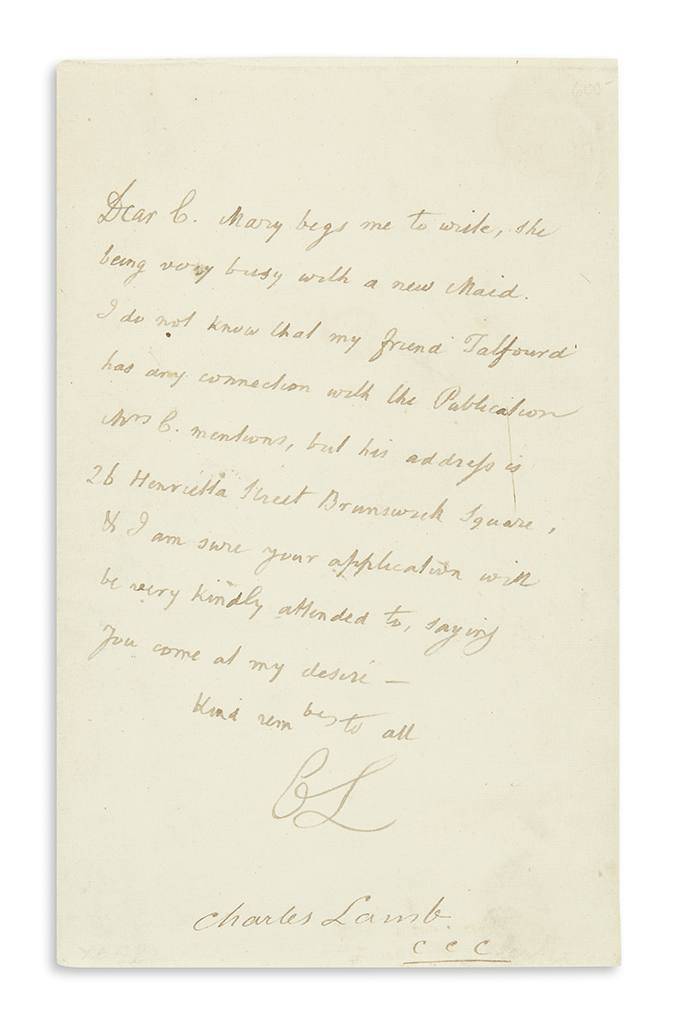 600-
Dear C. Mary begs me to write, she
being very busy with a new Maid.
I do not know that my friend Talfourd
has any connection with the Publication
Mrs C. mentions, but his address is
26 Henrietta Street Brunswick Square,
& I am sure your application will
be very kindly attended to, saying
You come at my desire —
Kind rembes to all
CL
Charles Lamb
c c c